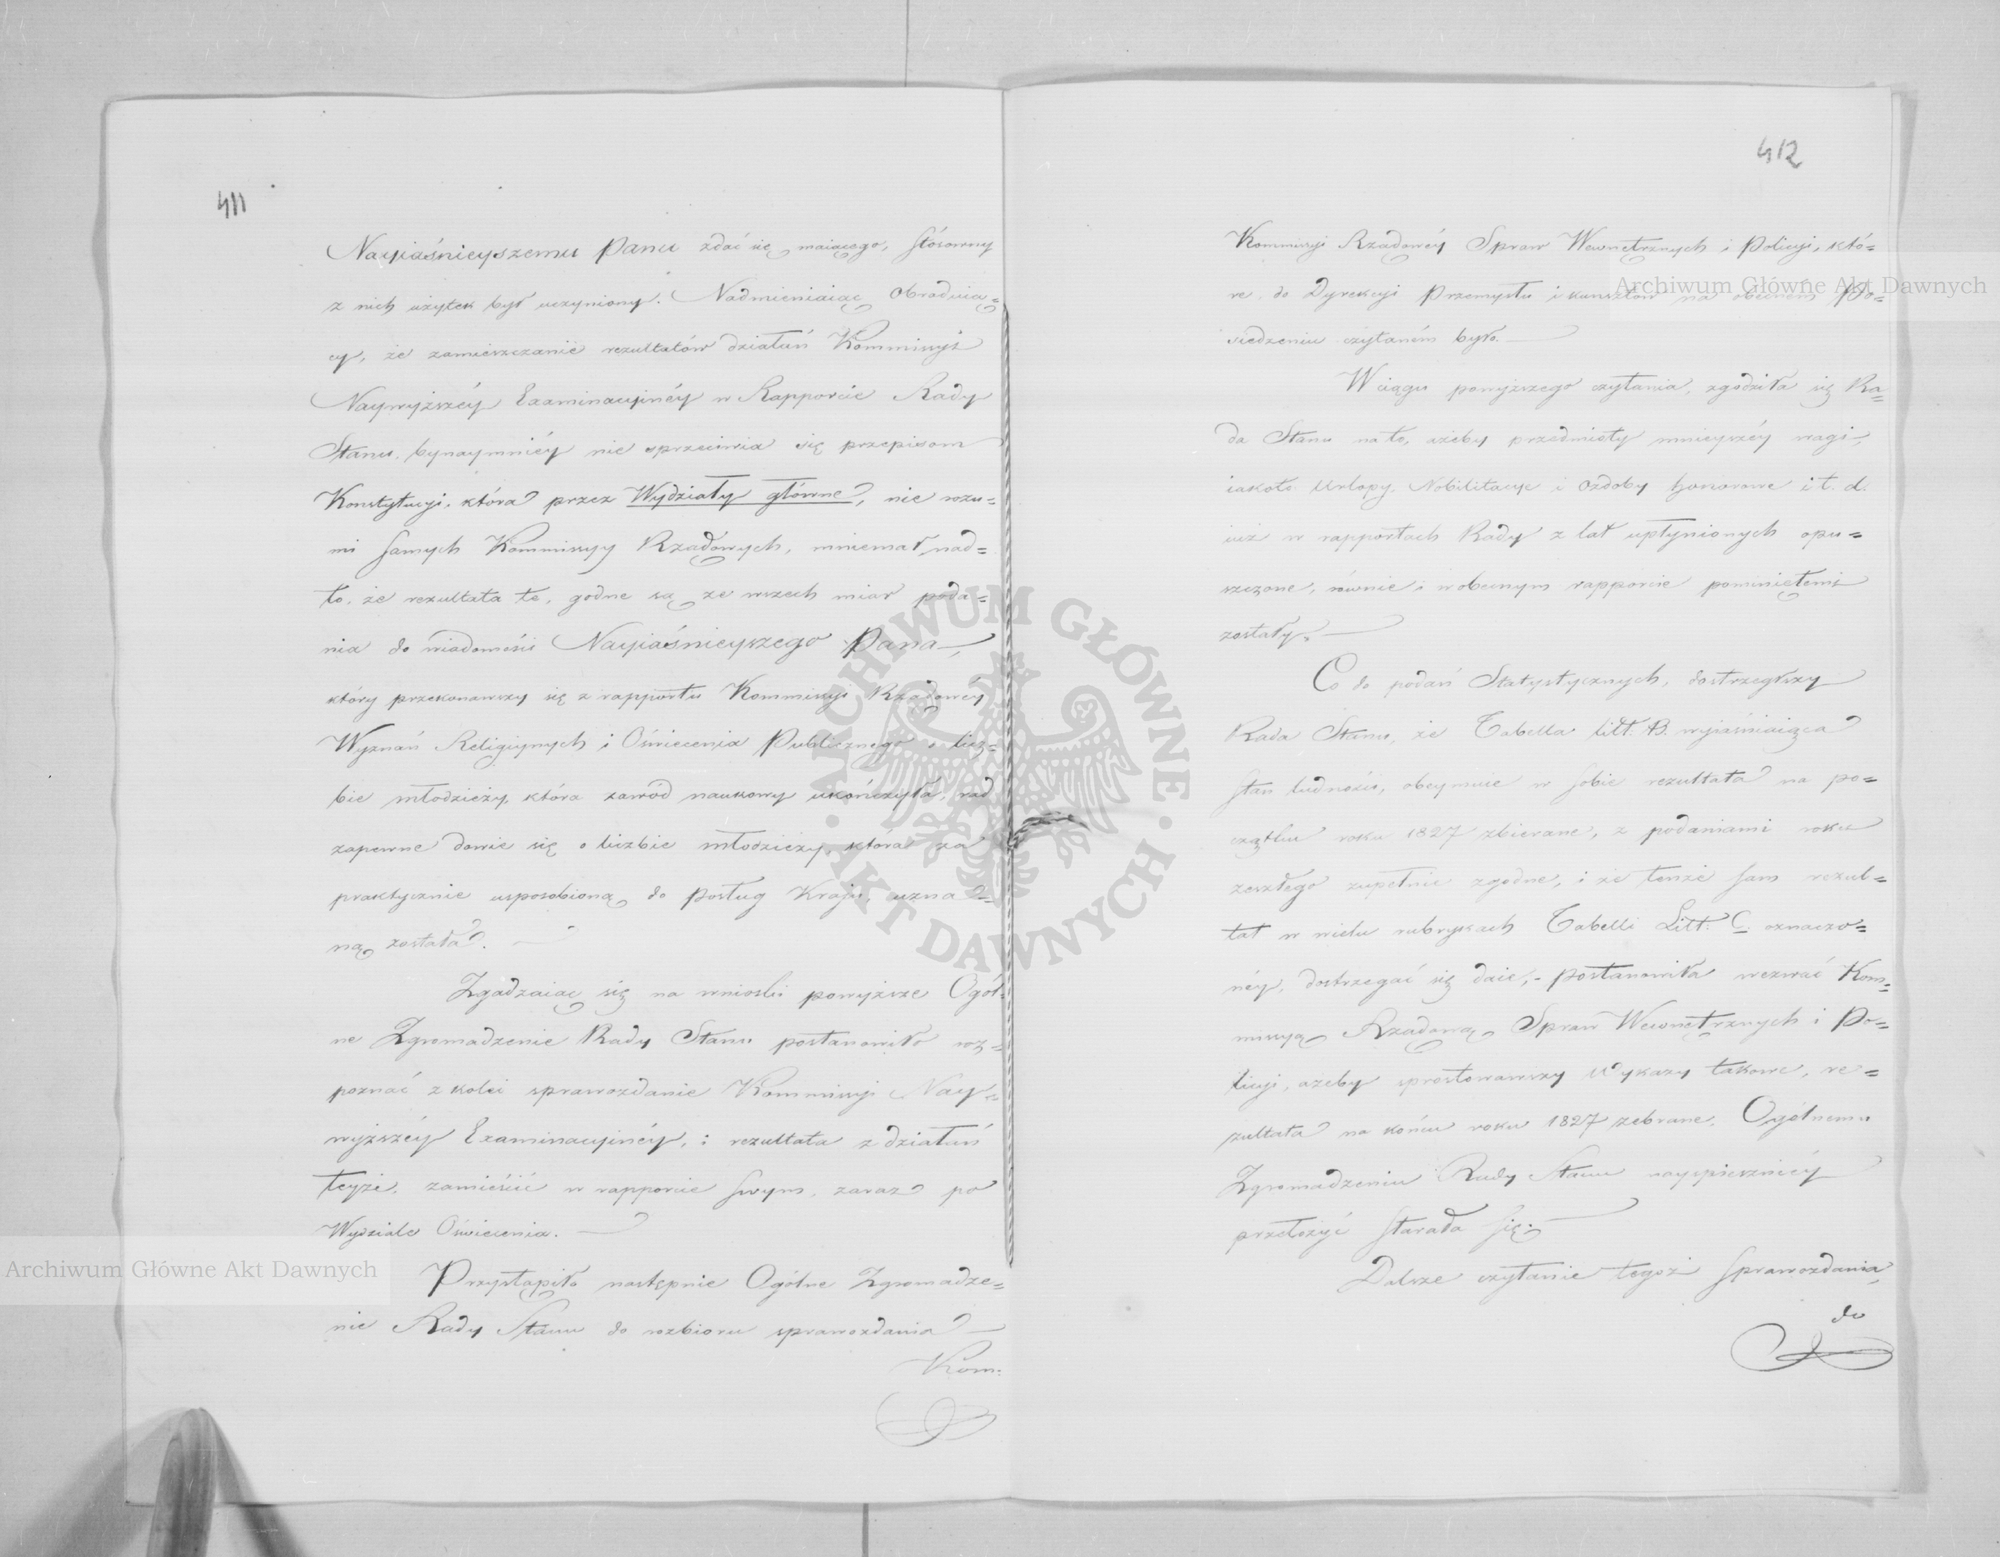 411
Nayiaśnieyszemu Panu zdać się maiącego, stósowny
z nich użytek był uczyniony. Nadmieniaiąc Obraduią=
cy, że zamieszczanie rezultatów działań Kommissyi
Naywyższéy Examinacyinéy w Rapporcie Rady
Stanu, bynaymniéy nie sprzeciwia się przepisom
Konstytucyi, która przez Wydziały główne, nie rozu=
mi samych Kommissyy Rządowych, mniemał nad=
to, że rezultata te, godne są ze wszech miar poda=
nia do wiadomości Nayiaśnieyszego Pana,
który przekonawszy się z rapportu Kommissyi Rządowéy
Wyznań Religiynych i Oświecenia Publicznego o licz=
bie młodzieży, która zawód naukowy ukończyła, rad
zapewne dowie się o liczbie młodzieży, która za
praktycznie usposobioną do posług Kraju, uzna=
ną została.
Zgadzaiąc się na wnioski powyższe Ogól=
ne Zgromadzenie Rady Stanu postanowiło roz=
poznać z kolei sprawozdanie Kommissyi Nay=
wyższéy Examinacyinéy, i rezultata z działań
teyże, zamieścić w rapporcie swym, zaraz po
Wydziale Oświecenia.
Przystąpiło następnie Ogólne Zgromadze=
nie Rady Stanu do rozbioru sprawozdania
Kom:
412
Kommissyi Rządowéy Spraw Wewnętrznych i Policyi, któ=
re, do Dyrekcyi Przemysłu i kunsztów na obecném Po=
siedzeniu czytaném było.
W ciągu powyższego czytania, zgodziła się Ra=
da Stanu na to, ażeby przedmioty mnieyszéy wagi,
iakoto: Urlopy, Nobilitacye i Ozdoby honorowe i t. d.
iuż w rapportach Rady z lat upłynionych opu=
szczone, równie i w obecnym rapporcie pominiętemi
zostały.
Co do podań Statystycznych, dostrzegłszy
Rada Stanu, że Tabella litt. B. wyiaśniaiąca
stan ludności, obeymuie w sobie rezultata na po=
czątku roku 1827 zbierane, z podaniami roku
zeszłego zupełnie zgodne, i że tenże sam rezul=
tat w wielu rubrykach Tabelli Litt. C. oznaczo=
néy, dostrzegać się daie, - postanowiła wezwać Kom=
missyą Rządową Spraw Wewnętrznych i Po=
licyi, ażeby sprostowawszy Wykazy takowe, re=
zultata na końcu roku 1827 zebrane, Ogólnemu
Zgromadzeniu Rady Stanu nayspieszniéy
przełożyć starała się.
Dalsze czytanie tegoż sprawozdania,
do
Archiwum Główne Akt Dawnych
Archiwum Główne Akt Dawnych
ARCHIWUM GŁÓWNE
AKT DAWNYCH